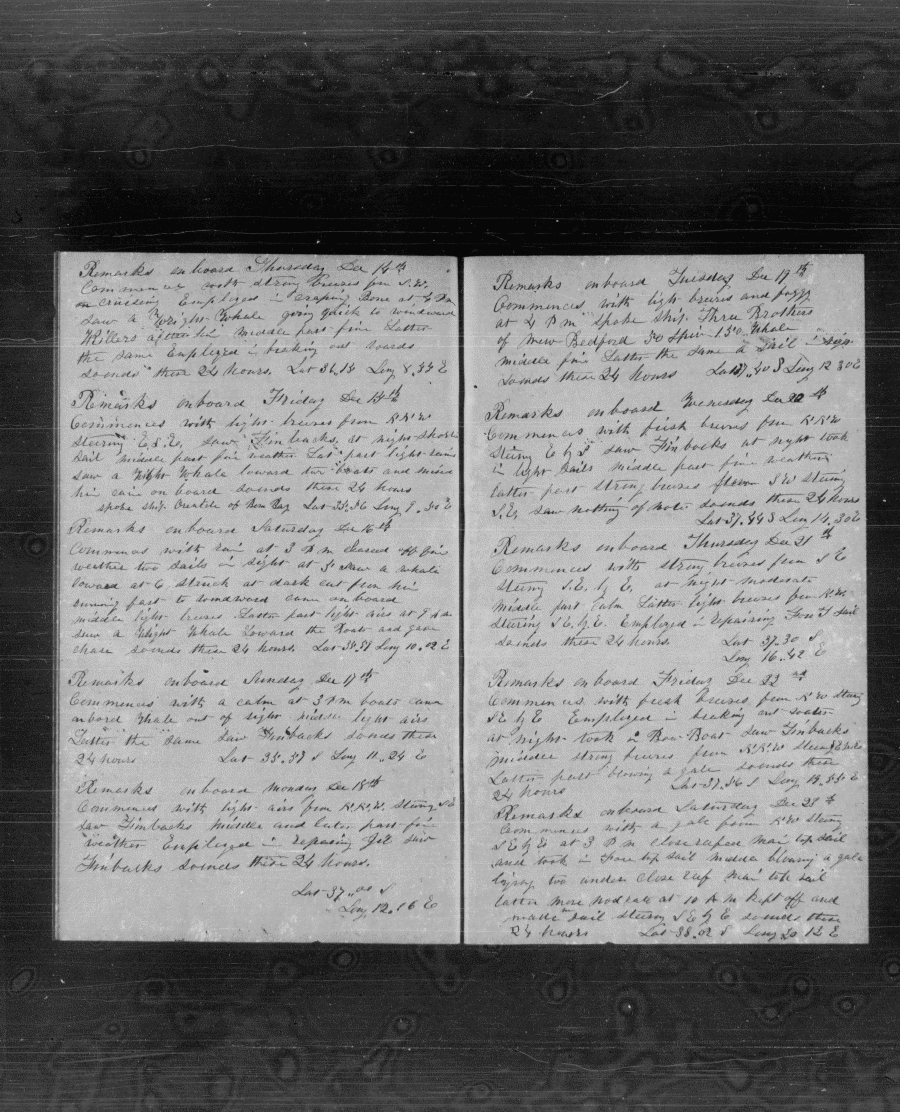 Remarks onboard Thursday Dec 14th
Commences with strong breezes from S.W.
cruising Employed in scraping Bone at
saw a Wright Whale going Quick to windward
Killers after him middle part fine Latter
the same Employed in breaking out
so ends these 24 hours. Lat 36.14 Long 8.44 E
Remarks onboard Friday Dec 15th
Commences with light breezes from N.N.W
steering E.S.E. saw Finbacks, at night short
sail middle part fine weather Lat part light rains
saw a Wright Whale lowerd two Boats and
him came on board so ends these 24 hours
spoke ship of Lat 35.36 Long 9.30 E
Remarks onboard Saturday Dec 16th
Commences with rain at 3 P m cleared off fine
weather two sails in sight at saw a whale
lowerd at 6 struck at dark cut from him
running fast to windward came onboard
middle light breezes Latter part light airs at 9 A m
saw a Wright Whale lowerd the Boats and gave
chase so ends these 24 hours. Lat 35.39 Long 10.02 E
Remarks onboard Sunday Dec 17th
Commences with a calm at 3 P m boats came
onbord Whale out of sight middle light airs
Latter the same saw Finbacks so ends these
24 hours Lat 35.37 S Long 11.24 E
Remarks onboard Monday Dec 18th
Commences with light airs from N.N.W. Steering S.E
saw Finbacks middle and later part fine
weather Employed in repairing Jib saw
Finbacks so ends these 24 hours.
Lat 37.00 S
Long 12.16 E
Remarks onboard Tuesday Dec 19th
Commences with light breezes and foggy
at 4 P m Spoke Ship Three Brothers
of New Bedford 30 Sper 130 Whale
middle fine Latter the same a Sail in sigh
so ends these 24 hours Lat 37.40 S Long 12 30 E
Remarks onboard Wenesday Dec 20th
Commences with fresh breezes from N.N.W
steering E by S saw Finbacks at night took
in light sails middle part fine weather
latter part strong breezes from S W steering
S.E. saw nothing of note so ends these 24 hours
Lat 37.44 S Long 14.30 E
Remarks onboard Thursday Dec 21th
Commences with strong breezes from S E
steering S.E. by E. at night moderate
middle part Calm Latter light breezes from N.W.
steering S E by E. Employed in repairing sail
so ends these 24 hours. Lat 37.30 S
Long 16.42 E
Remarks onboard Friday Dec 22nd
Commences with fresh breezes from N W steering
S E by E Employed in breaking out water
at night took in Bow Boat saw Finbacks
middle strong breezes from N.N.W Steering
Latter part blowing a gale so ends these
24 hours Lat 37.56 S Long 18.55 E
Remarks onboard Saturday Dec 23th
Commences with a gale from N W steering
S E by E at 3 P m close reefed main top sail
and took in fore top sail middle blowing a gale
laying too under close reef main top sail
latter more moderate at 10 A m kept off and
made sail steering S E by E so ends these
24 hours Lat 38.02 S Long 20 12 E